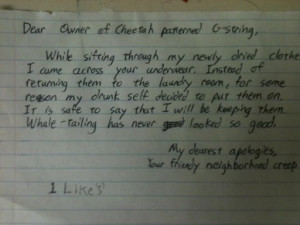 Dear Owner of Cheetah patterned G-string,
While sifting through my newly dried clothe
I came across your underwear. Instead of
returning them to the laundry room, for some
reason my drunk self decided to put them on.
It is safe to say that I will be keeping them.
Whale-tailing has never looked so good.
My dearest apologies,
Your friendly neighborhood creep
1 Like's'